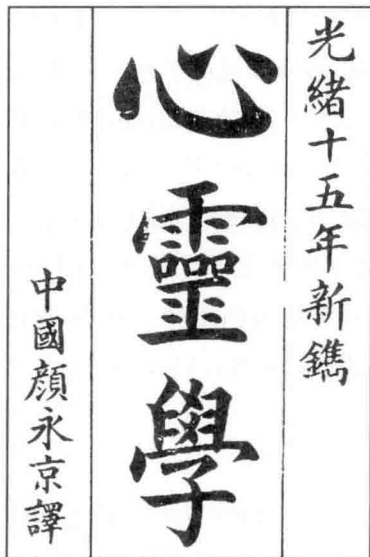 光緒十五年新鐫
心靈學
中國顔永京譯